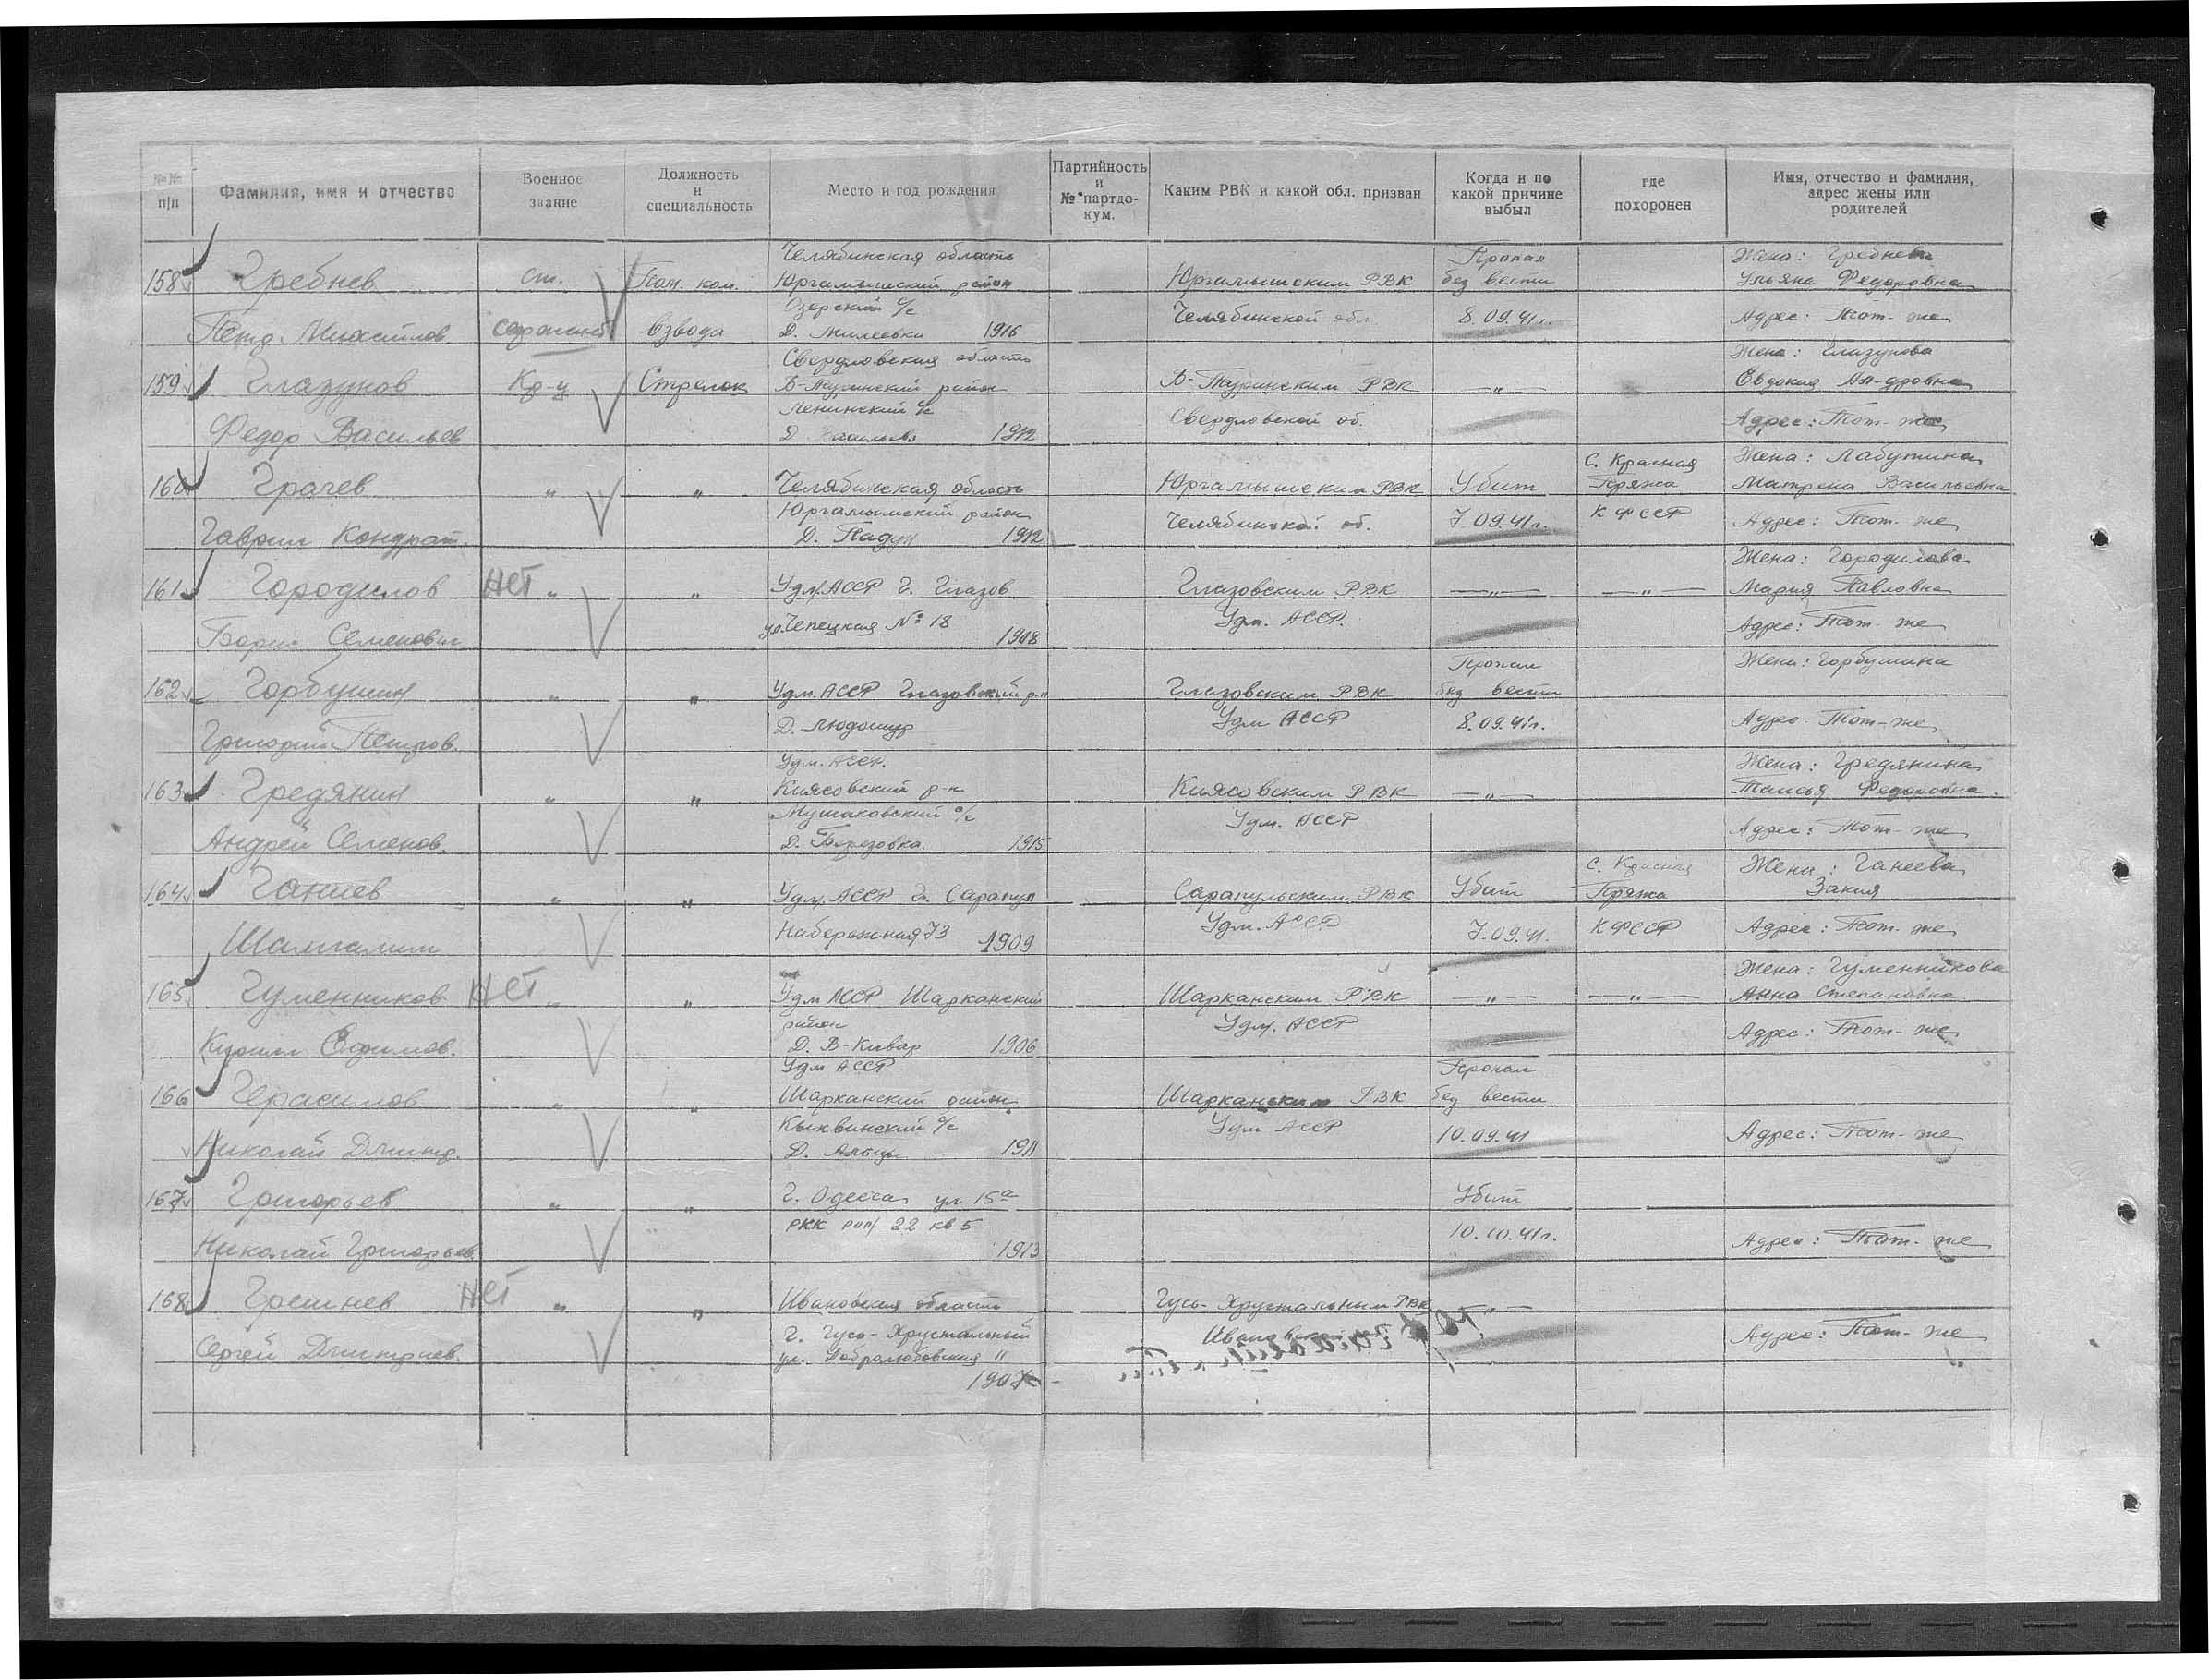 №№ п/п
Фамилия, имя и отчество
Военное звание
Должность и специальность
Место и год рождения
Партийность и № партдо-кум.
Каким РВК и какой обл. призван
Когда и по какой причине выбыл
где похоронен
Имя, отчество и фамилия, адрес жены или родителей
Челябинская область Пропал Жена: Гребнева
158 Гребнев ст. Пом. ком. Юргамышский район Юргамышским РВК без вести Ульяна Федоровна
Озерский с/с
Петр Михайлов. сержант взвода Д. 1916 Челябинской обл. 8.09.41г. Адрес: Тот-же
Свердловская область Жена: Глазунова
159 Глазунов Кр-ц Стрелок Б-Туринский район Б-Туринским РВК —"— Евдокия Ал-дровна
Ленинский с/с
Федор Васильев Д. 1912 Свердловской об. Адрес: Тот-же
с. Красная Жена: Лабутина
160 Грачев " " Челябинская область Юргамышским РВК Убит Пряжа Матрена Васильевна
Юргамышский район
Гаврил Кондрат. Д. Падун 1912 Челябинской об. 7.09.41г. КФССР Адрес: Тот-же
Жена: Городилова
161 Городилов НЕТ " " Удм. АССР г. Глазов Глазовским РВК —"— —"— Мария Павловна
Борис Семенович ул. Чепецкая № 18 1908 Удм. АССР. Адрес: Тот-же
Пропал Жена: Горбушина
162 Горбушин " " Удм. АССР Глазовский р-н Глазовским РВК без вести
Григорий Петров. Д. Удм АССР 8.09.41г. Адрес Тот-же
Удм. АССР. Жена: Гредянина
163 Гредянин " " Киясовский р-н Киясовским РВК —"— Таисья Федоровна.
Мушаковский с/с
Андрей Семенов. Д. Березовка. 1915 Удм. АССР Адрес: Тот-же
с. Красная Жена: Ганеева
164 Ганиев " " Удм. АССР г. Сарапул Сарапульским РВК Убит Пряжа Закия
Набережная 73 1909 Удм. АССР 7.09.41. КФССР Адрес: Тот-же
Жена: Гуменникова
165 Гуменников НЕТ " " Удм АССР Шарканский Шарканским РВК —"— —"— Анна Степановна
район
Кирилл Ефимов. Д. В-Кивар 1906 Удм. АССР Адрес: Тот-же
Удм АССР Пропал
166 Герасимов " " Шарканский район Шарканским РВК без вести
Кыквинский с/с
Николай Дмитр. Д. 1911 Удм АССР 10.09.41 Адрес: Тот-же
167 Григорьев " " г. Одесса ул 15а Убит
РКК 22 кв 5
Николай Григорьев. 1913 10.10.41г. Адрес: Тот-же
168 Грешнев НЕТ " " Ивановская область Гусь-Хрустальным РВК —"—
Сергей Дмитриев. г. Гусь-Хрустальный Адрес: Тот-же
ул. Добролюбовская 11
1907